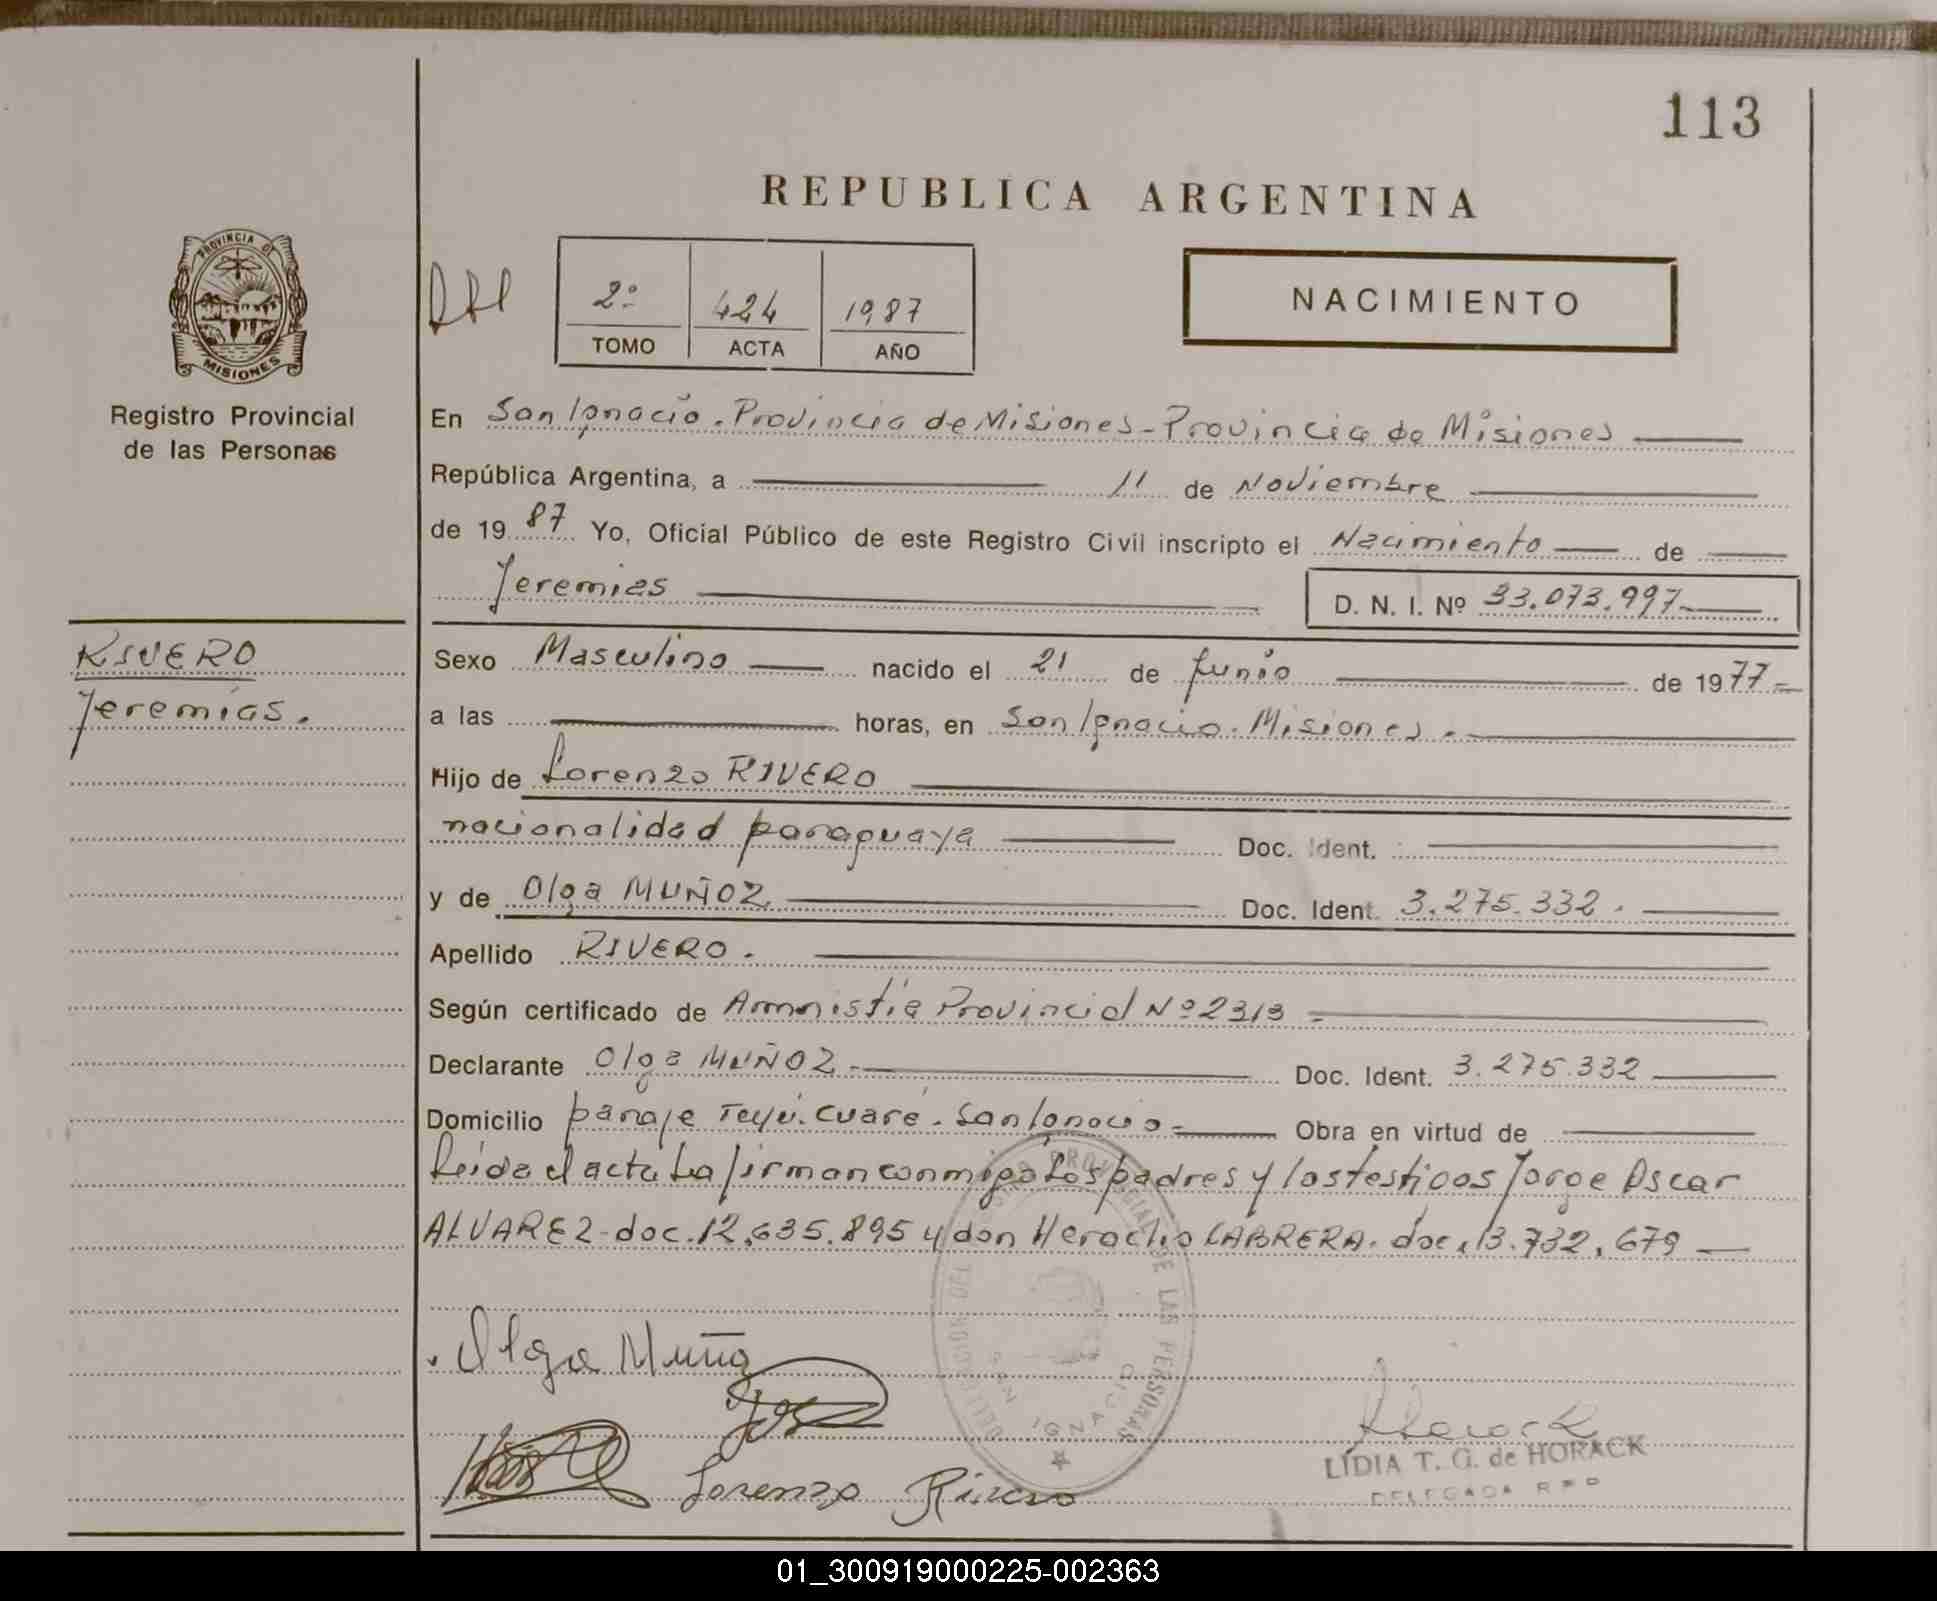 113
REPUBLICA ARGENTINA
PROVINCIA DE
MISIONES
Registro Provincial
de las Personas
2º 424 1987
TOMO ACTA AÑO
NACIMIENTO
En San Ignacio. Provincia de Misiones - Provincia de Misiones
República Argentina, a 11 de Noviembre
de 1987 Yo, Oficial Público de este Registro Civil inscripto el Nacimiento de
Jeremias D. N. I. Nº 33.073.997
RIVERO
Jeremias.
Sexo Masculino nacido el 21 de Junio de 1977
a las horas, en San Ignacio. Misiones.
Hijo de Lorenzo RIVERO
nacionalidad paraguaya Doc. Ident.
y de Olga MUÑOZ Doc. Ident. 3.275.332.
Apellido RIVERO.
Según certificado de Amnistia Provincial Nº 2313
Declarante Olga MUÑOZ Doc. Ident. 3.275.332
Domicilio paraje Teyú. Cuaré. San Ignacio Obra en virtud de
Leida el acta La firman conmigo Los padres y los testigos Jorge Oscar
ALVAREZ - doc. 12.635.895 y don Heraclio CABRERA. doc. 13.732.679
DELEGACION DEL REGISTRO PROVINCIAL DE LAS PERSONAS
SAN IGNACIO
Olga Muñoz
Lorenzo Rivero
LIDIA T. G. de HORACK
DELEGADA R P P
01_300919000225-002363